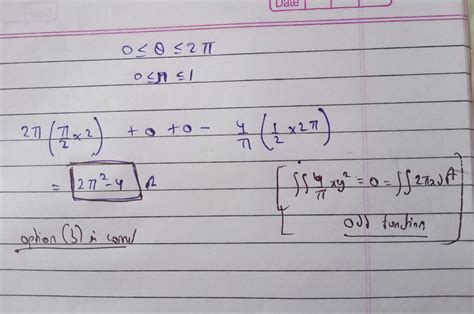 Date
0 ≤ θ ≤ 2π
0 ≤ r ≤ 1
2π(π/2 × 2) + 0 + 0 - 4/π (1/2 × 2π)
= 2π² - 4
[∬ 4/π xy² = 0 = ∬ 2π x dA
odd function
option (3) is